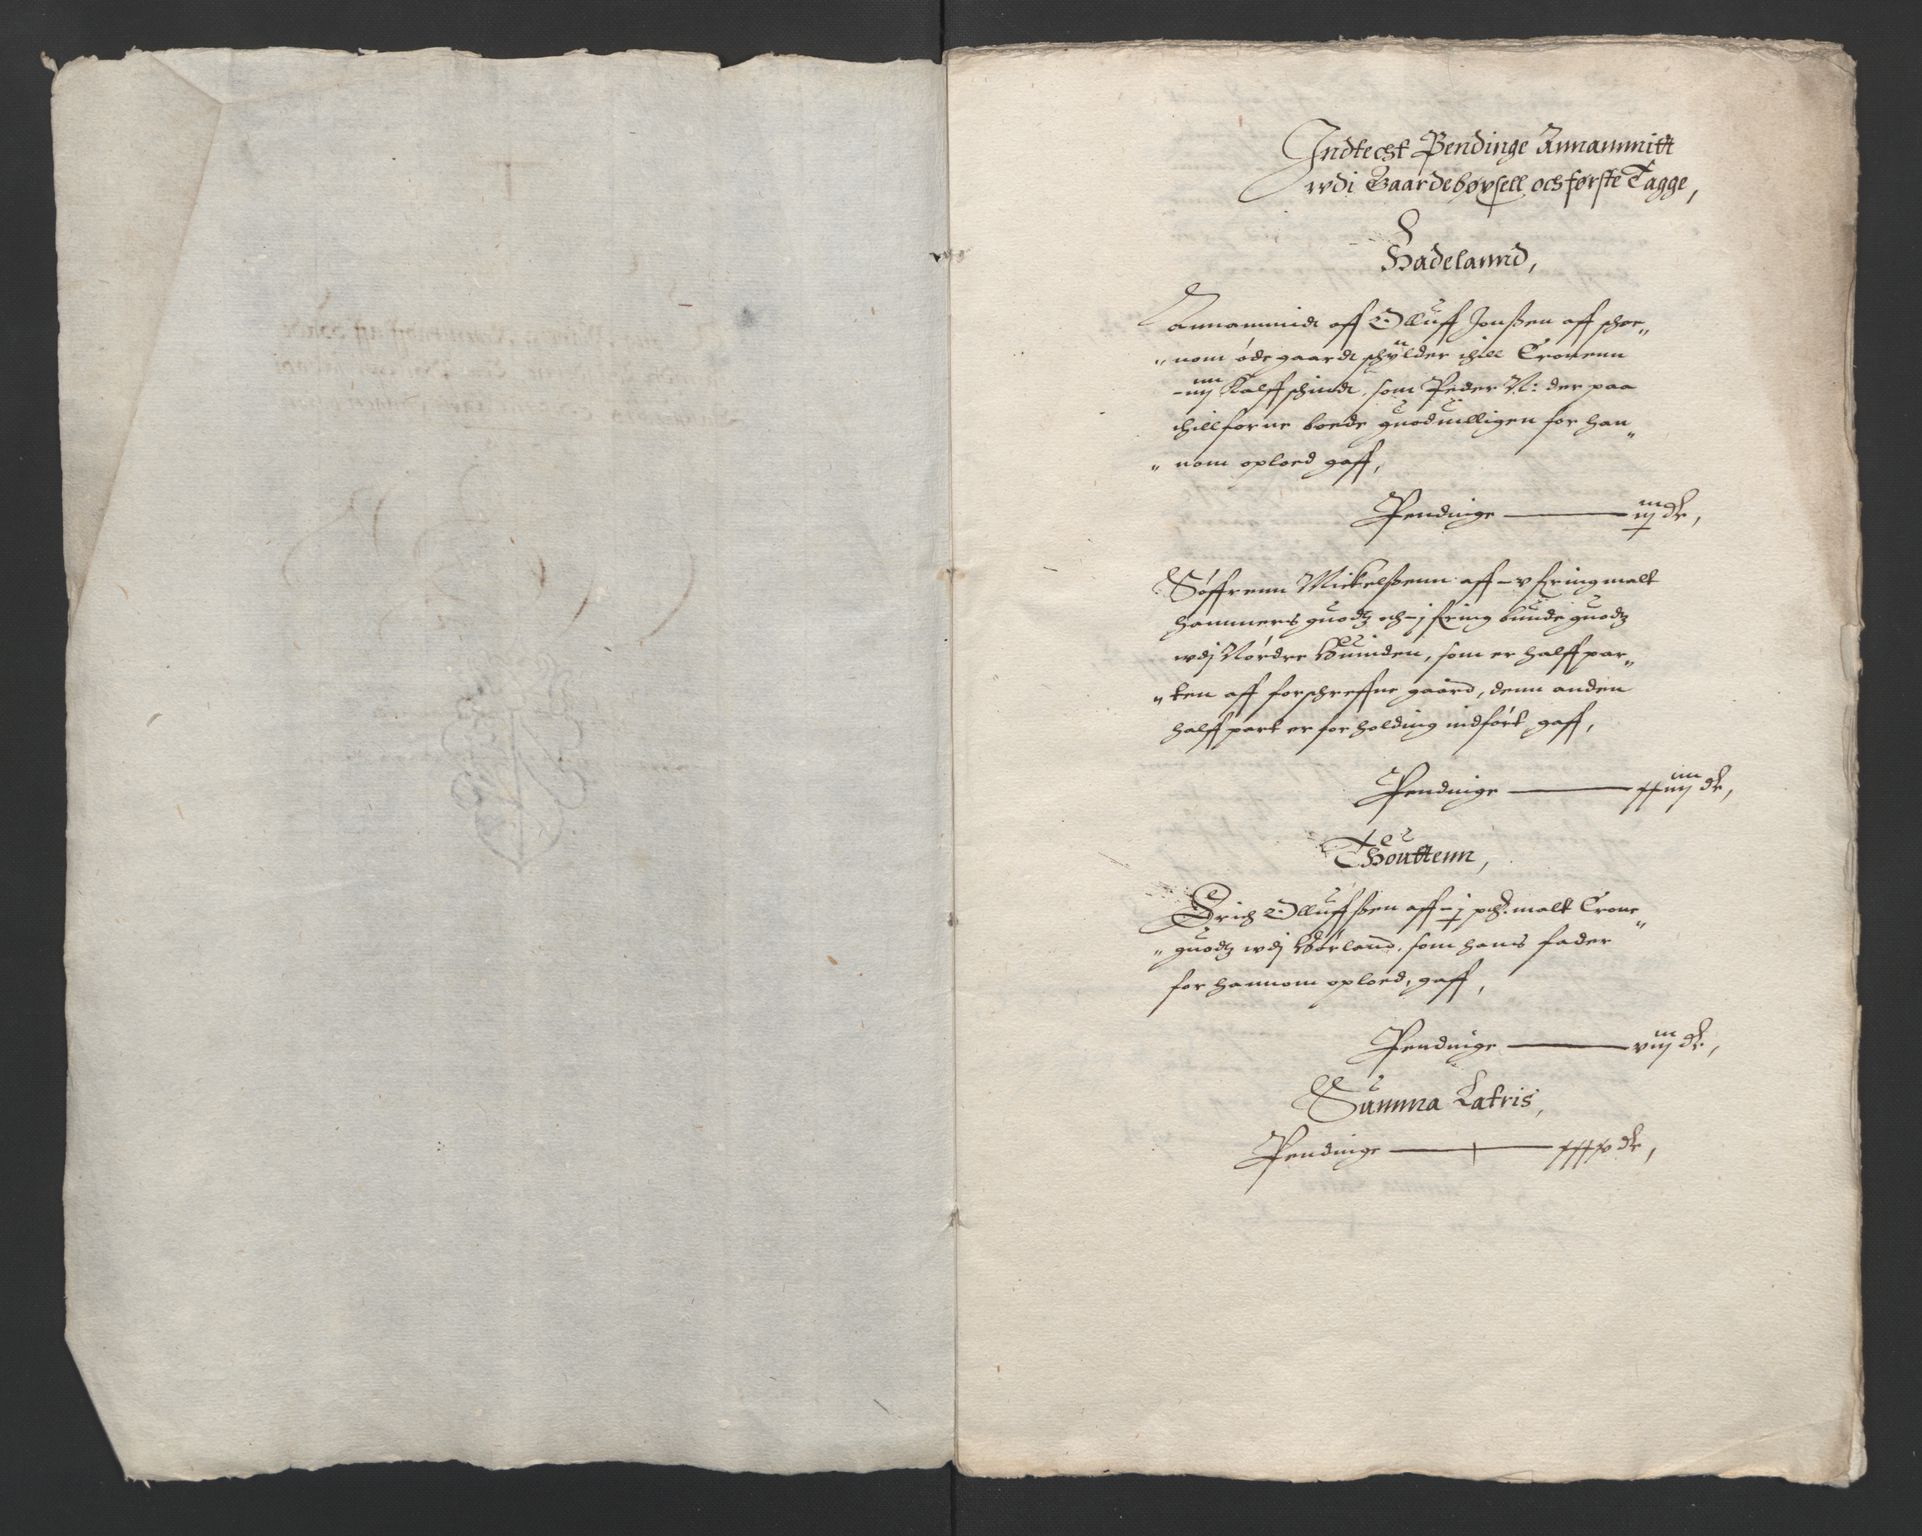 Indtecht Pendinge Annammitt
wdi Gaardebøxsell och første Tagge,
Hadelannd,
Annammidt aff Olluff Jonßen aff
nom øde gaardt schylder thill Cronenn
iiij Kalffschindt, som Peder N: der paa
thillforne boede guoduilligen for han„
„nom oploed gaff,
Pendinge — dr,
Søffrenn Mickelßenn aff – v fring malt
hammers guodtz och – j fring bunde guodtz
wdj Nordre Huinden, som er halff par„
„ten aff forschreffne gaard, denn anden
halff part er for holding indført, gaff,
Pendinge — xxiiij dr,
Thouttenn,
Erich Olluffßen aff – j pd: malt Crone„
„guodtz wdj Børland, som hans fader
for hannom oploed, gaff,
Pendinge — viij dr,
Summa Latris,
Pendinge — xxxv dr,